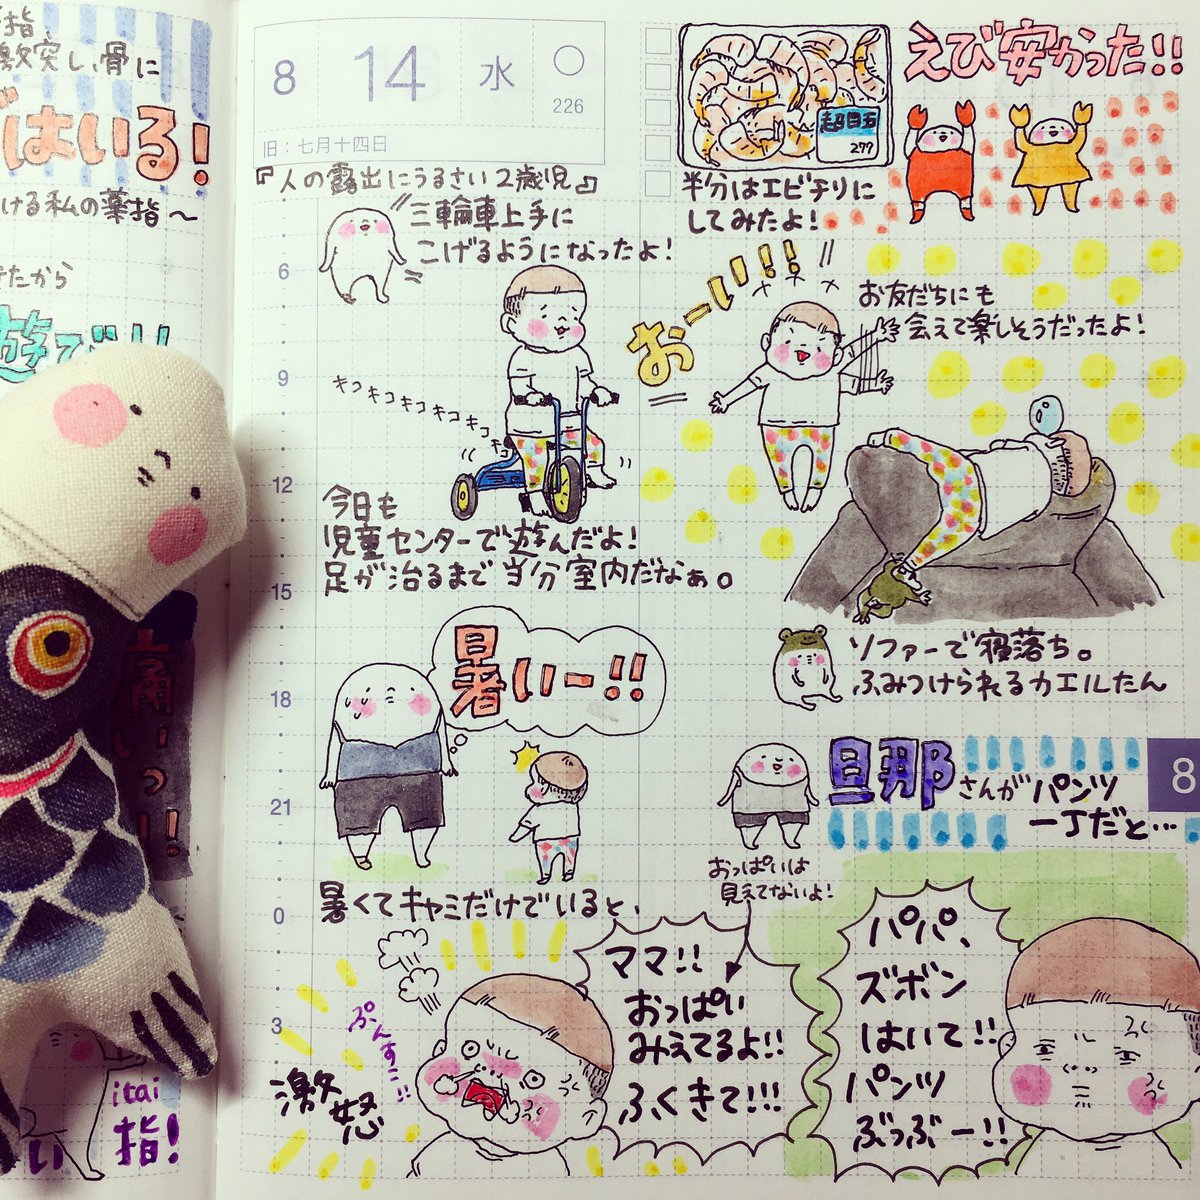 指、
激突し、骨に
はいる!
ける私の薬指〜
てたから
遊で!!
痛いっ!
itai
い 指!
8 14 水
226
旧:七月十四日
『人の露出にうるさい2歳児』
三輪車上手に
こげるようになったよ!
キコキコキコキコキコキコ
今日も
児童センターで遊んだよ!
足が治るまで当分室内だなぁ。
6
9
12
15
18
21
0
3
暑いー!!
暑くてキャミだけでいると、
激怒
ぷんすこ!!
ママ!!
おっぱい
みえてるよ!!
ふくきて!!!
超目玉
277
えび安かった!!
半分はエビチリに
してみたよ!
おーい!!!
お友だちにも
会えて楽しそうだったよ!
ソファーで寝落ち。
ふみつけられるカエルたん
旦那さんがパンツ
一丁だと…
8
おっぱいは
見えてないよ!
パパ、
ズボン
はいて!!
パンツ
ぶっぶー!!